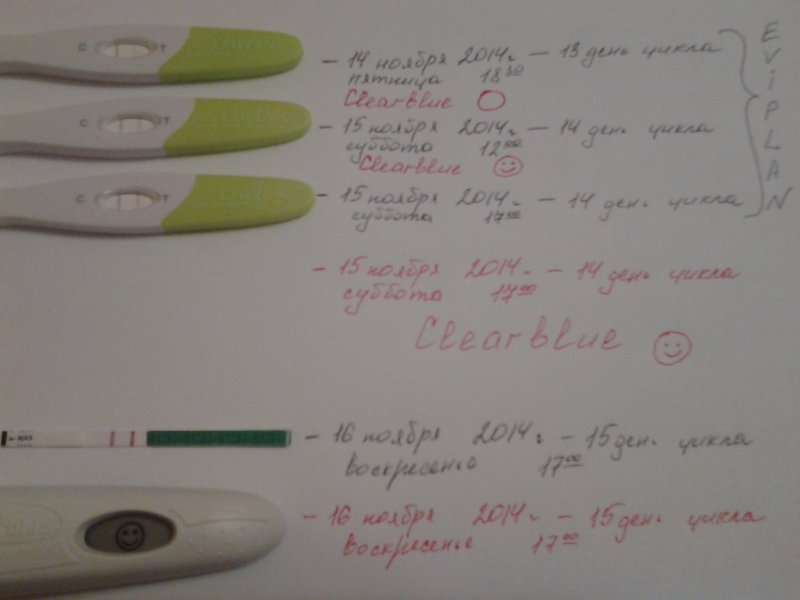 C T
- 14 ноября 2014г. - 13 день цикла
пятница 18 00
Clearblue
C T
- 15 ноября 2014г. - 14 день цикла
суббота 12 00
Clearblue
C T
- 15 ноября 2014г. - 14 день цикла
суббота 17 00
EVIPLAN
- 15 ноября 2014г. - 14 день цикла
суббота 17 00
Clearblue
MAX
- 16 ноября 2014г. - 15 день цикла
воскресенье 17 00
- 16 ноября 2014г. - 15 день цикла
воскресенье 17 00